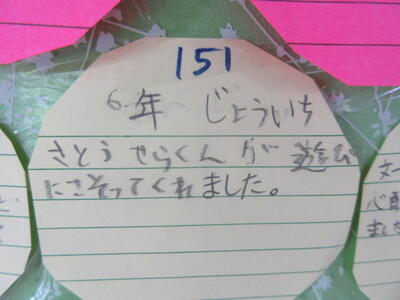 151
6年 じょういち
さとう せらくんが 遊び
にさそってくれました。
文一
心配